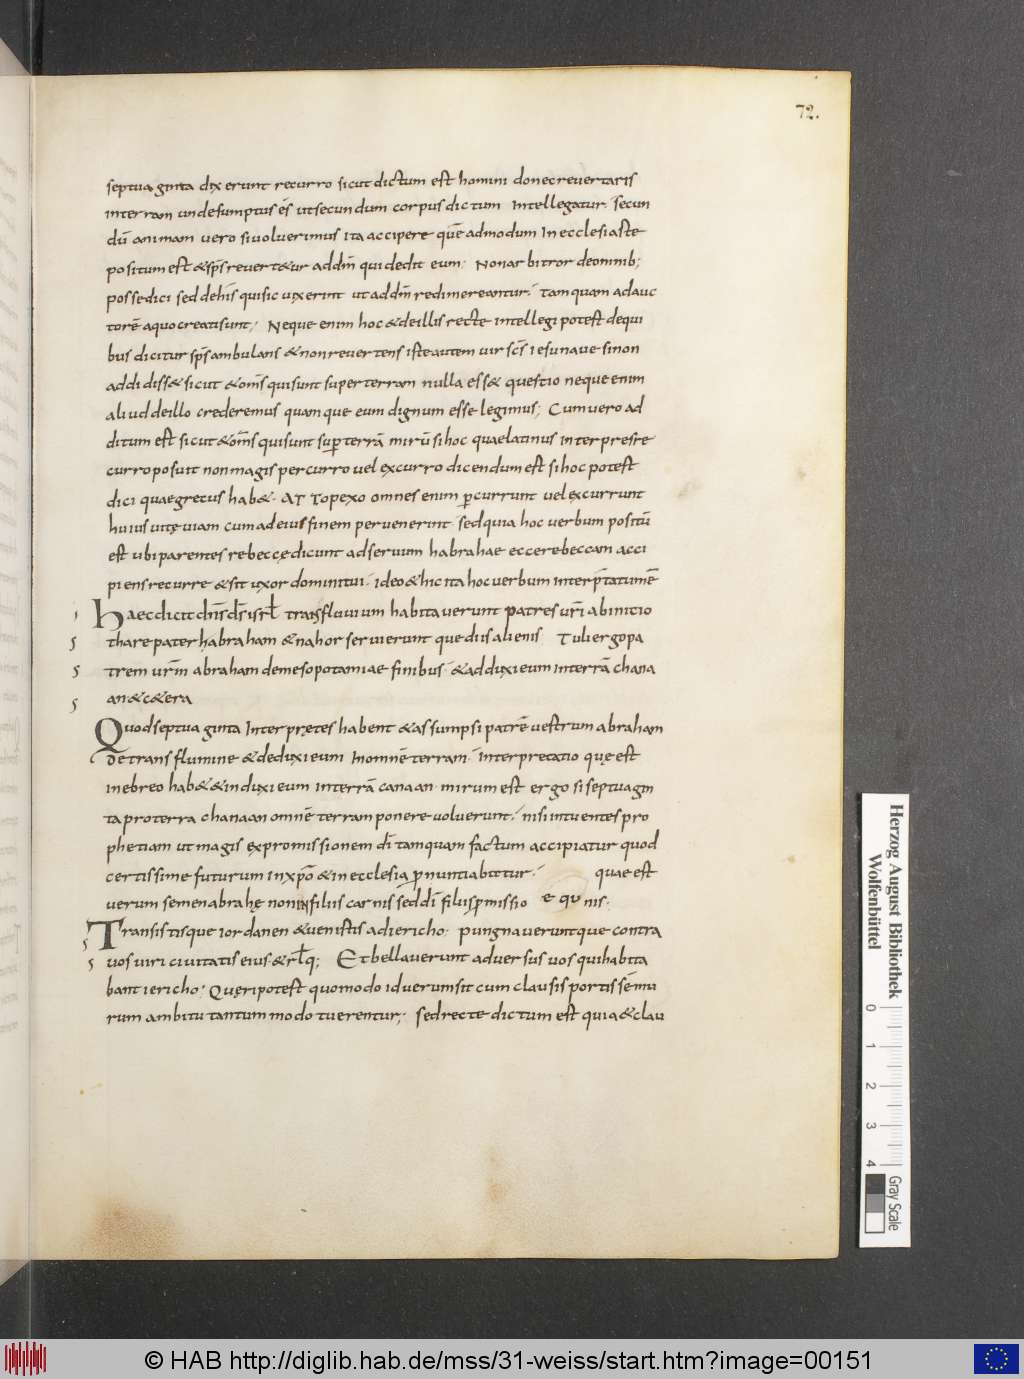 72.
septuaginta dixerunt recurro sicut dictum est homini donec revertaris
in terram unde sumptus es̄ ut secundum corpus dictum Intellegatur. secun
dū animam vero si voluerimus ita accipere quē admodum In ecclesiaste
positum est & sp̄s revert&ur ad dm̄ qui dedit eum· Non arbitror de omnib;
posse dici sed de his̄ qui sic vixerint ut ad dm̄ redi mereantur· tamquam ad auc
torē a quo creati sunt; Neque enim hoc & de illis recte intellegi potest de qui
bus dicitur sp̄s ambulans & non revertens iste autem vir scs̄ iesu nave si non
addidiss& sicut & om̄s qui sunt super terram nulla ess& questio neque enim
aliud de illo crederemus quam que eum dignum esse legimus; Cum vero ad
ditum est sicut & om̄s qui sunt sup terrā mirū si hoc quae latinus interpres re
curro posuit non magis percurro vel excurro dicendum est si hoc potest
dici quae grecus hab&· ΑΤ Τopexo omnes enim pcurrunt vel excurrunt
huius vitę viam cum ad eius finem pervenerint· sed quia hoc verbum positū
est ubi parentes rebeccę dicunt ad servum habrahae ecce rebeccam acci
piens recurre & sit uxor domini tui· ideo & hic ita hoc verbum interp̄tatum ē
Haec dicit dn̄s ds̄ isrl̄ trans fluvium habitaverunt patres vr̄i ab initio
thare pater habraham & nahor servierunt que diis alienis Tuli ergo pa
trem vr̄m abraham de mesopotamiae finibus· & adduxi eum in terrā chana
an & c&era
Quod septuaginta Interpretes habent & assumpsi patrē vestrum abraham
de trans flumine & deduxi eum In omnē terram· Interpretatio quę est
in ebreo hab& & induxi eum in terrā canaan· mirum est ergo si septuagin
ta pro terra chanaan omnē terram ponere voluerunt· nisi intuentes pro
phetiam ut magis ex promissionem dī tamquam factum accipiatur quod
certissime futurum in xpo & in ecclesia pnuntiabatur· quae est
verum semen abrahę non in filiis carnis sed dī filiis pmissio e qu nis·
Transistisque iordanen & venistis ad iericho· pungnaveruntque contra
vos viri civitatis eius & rlq; Et bellaverunt adversus vos qui habita
bant iericho· Quęri potest quomodo id verum sit cum clausis portis se mu
rum ambitu tantum modo tuerentur; sed recte dictum est quia & clau
Herzog August Bibliothek
Wolfenbüttel
0 1 2 3 4
Gray Scale
© HAB http://diglib.hab.de/mss/31-weiss/start.htm?image=00151